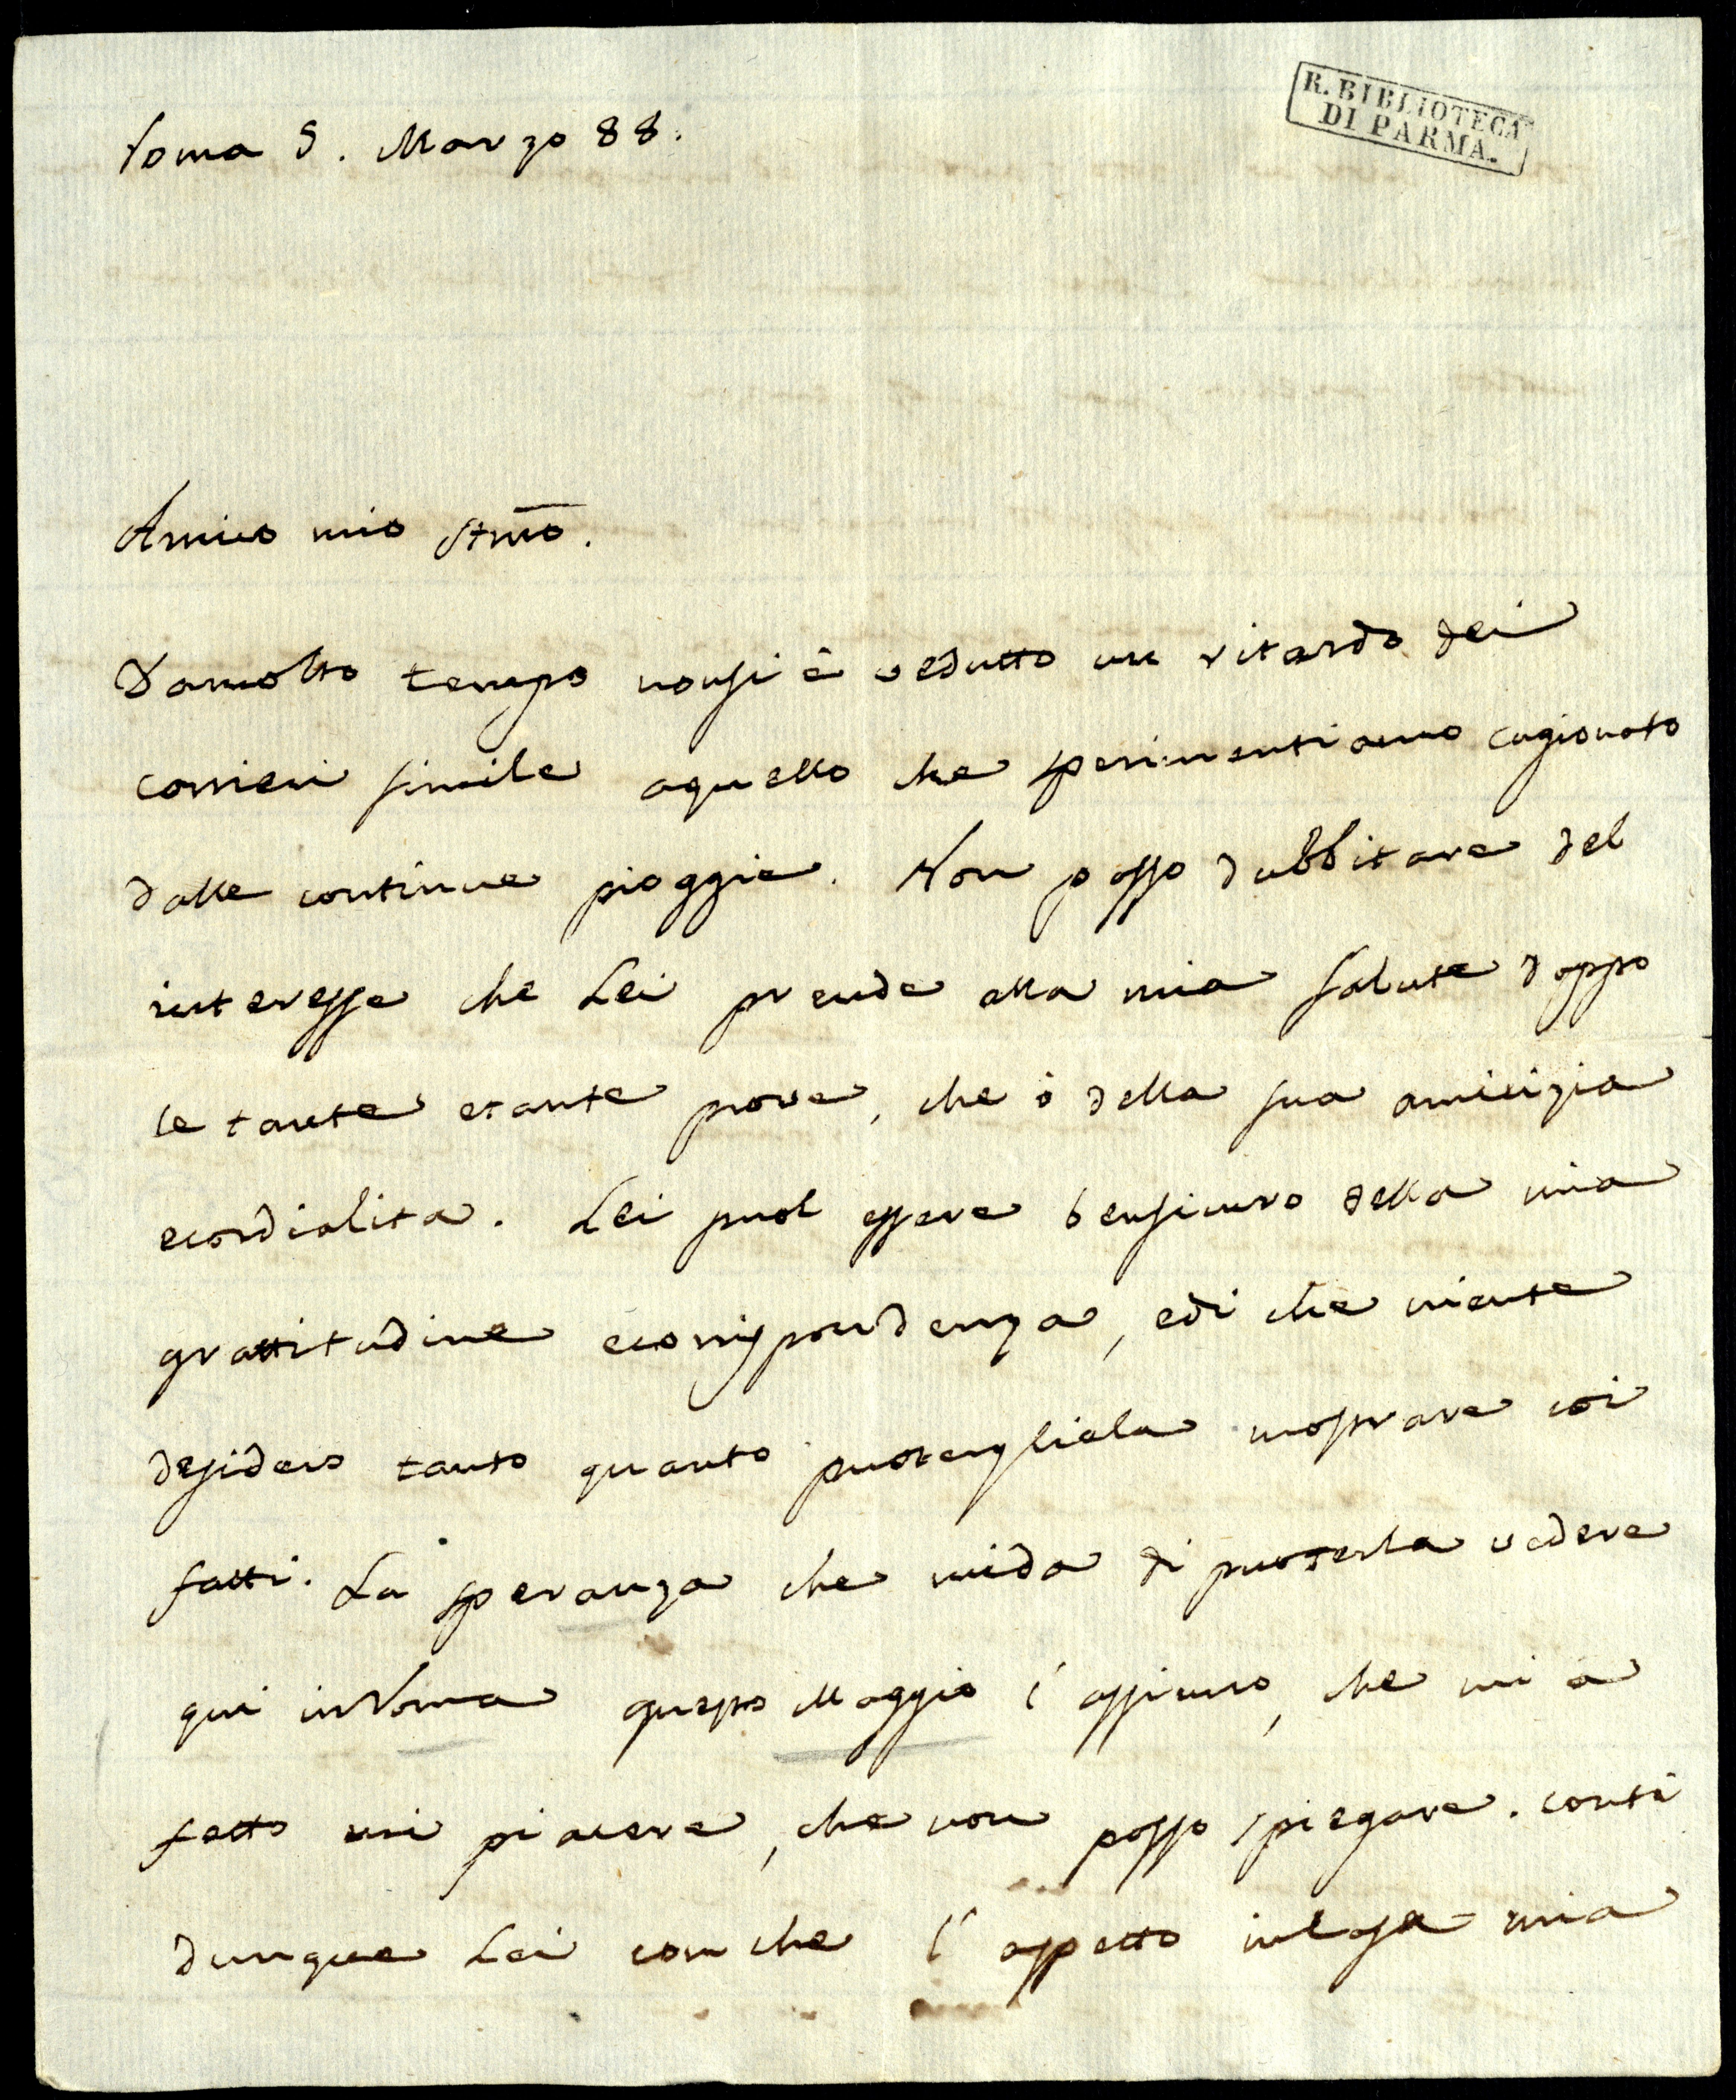 R. BIBLIOTECA
DI PARMA.
Roma 5. Marzo 88.
Amico mio Stm̅o.
Damolto tempo nonsi è vedutto un ritardo dei
corrieri simile aquello che sperimentiamo cagionato
dalle continue pioggie. Non posso dubbitare del
interesse che Lei prende alla mia salute doppo
le tante etante prove, che ò della sua amicizia
ecordialita. Lei puol essere bensicuro della mia
grattitudine ecorrispondenza, edi che niente
desidero tanto quanto puotergliela mostrare coi
fatti. La speranza che mida di puoterla vedere
qui inRoma questo Maggio l'assicuro, che mi a
fatto un piacere, che non posso spiegare. conti
dunque Lei con che l'aspetto incasa mia